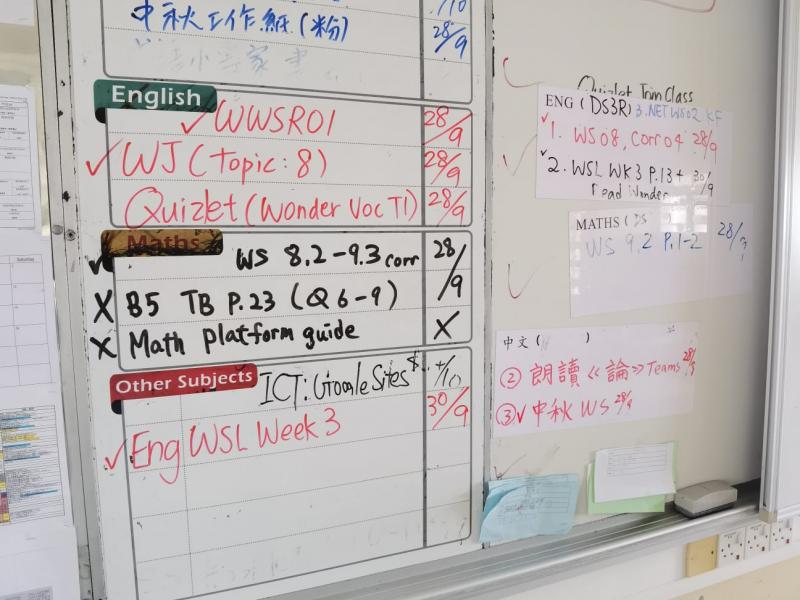 中秋工作紙(粉) 28/9
English
✓ WWSR01 28/9
✓ WJ (Topic: 8) 28/9
Quizlet (Wonder Voc T1) 28/9
Maths
✓ WS 8.2-9.3 corr 28/9
X B5 TB P.23 (Q6-9)
X Math platform guide X
Other Subjects
ICT: Google Sites
✓ Eng WSL Week 3 30/9
Quizlet Trim Class
ENG (DS3R) 3. NET WS02 KF
✓ 1. WS 08, Corr 04 28/9
✓ 2. WSL WK3 P.13+ 30/9
Read Wonder
MATHS (DS
WS 9.2 P.1-2 28/
中文 ( )
② 朗讀《論》Teams 28/9
③ ✓ 中秋 WS 28/9